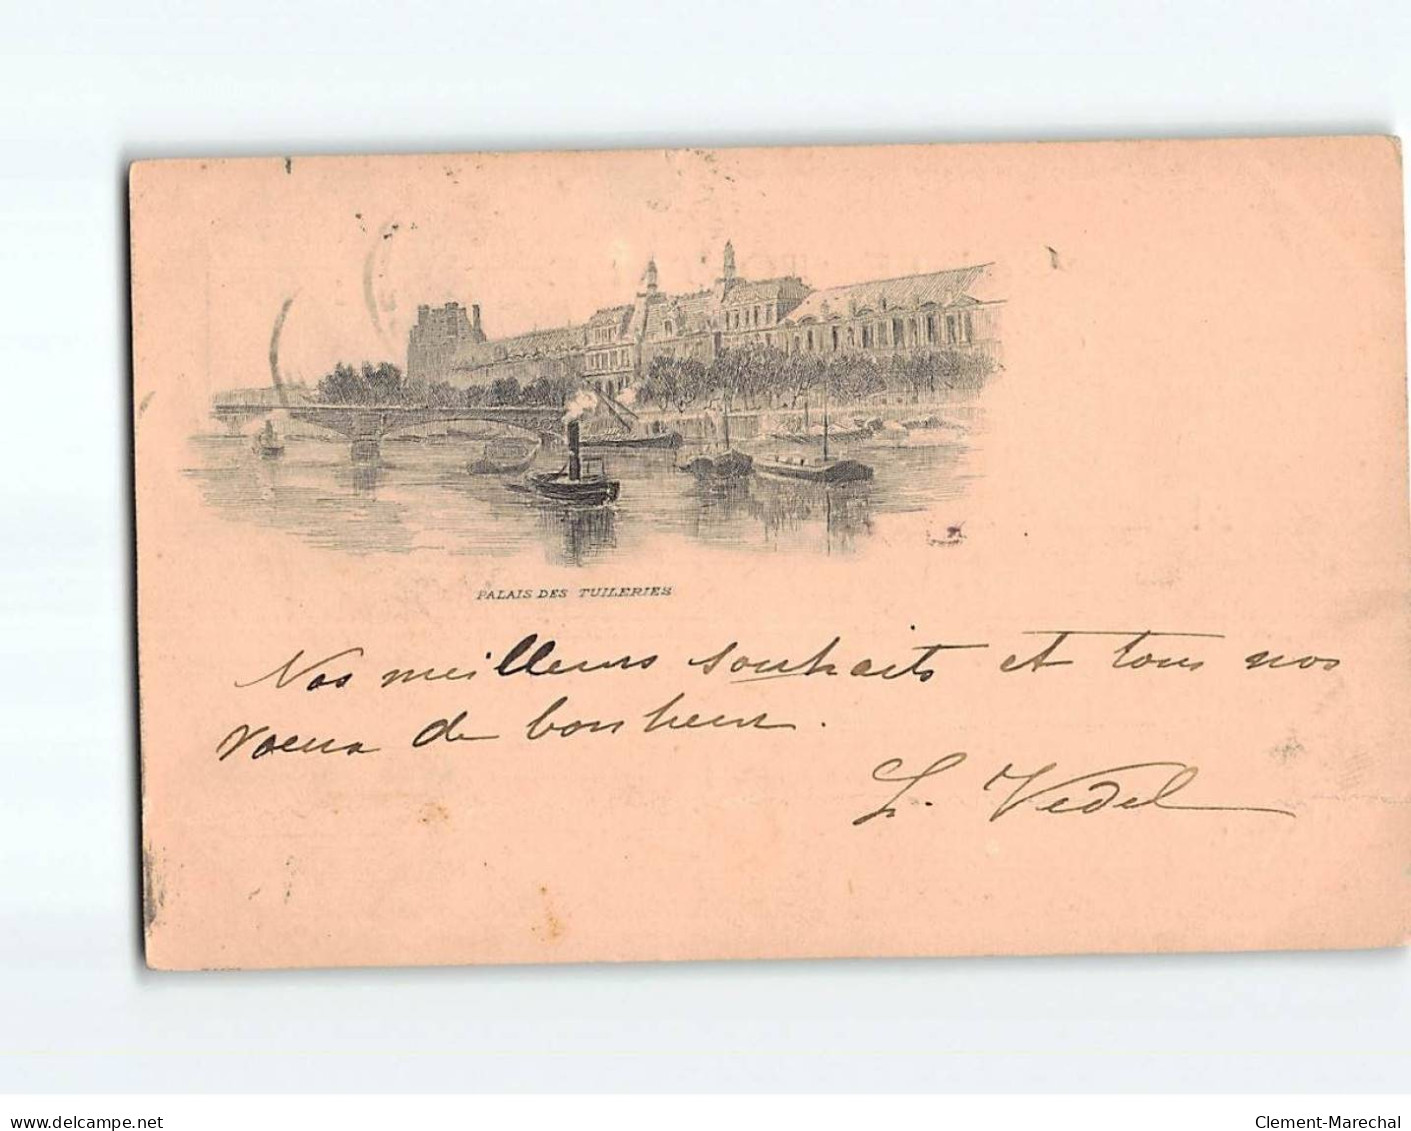 PALAIS DES TUILERIES
Nos meilleurs souhaits et tous nos
voeux de bonheur.
L. Vedel
www.delcampe.net
Clement-Marechal